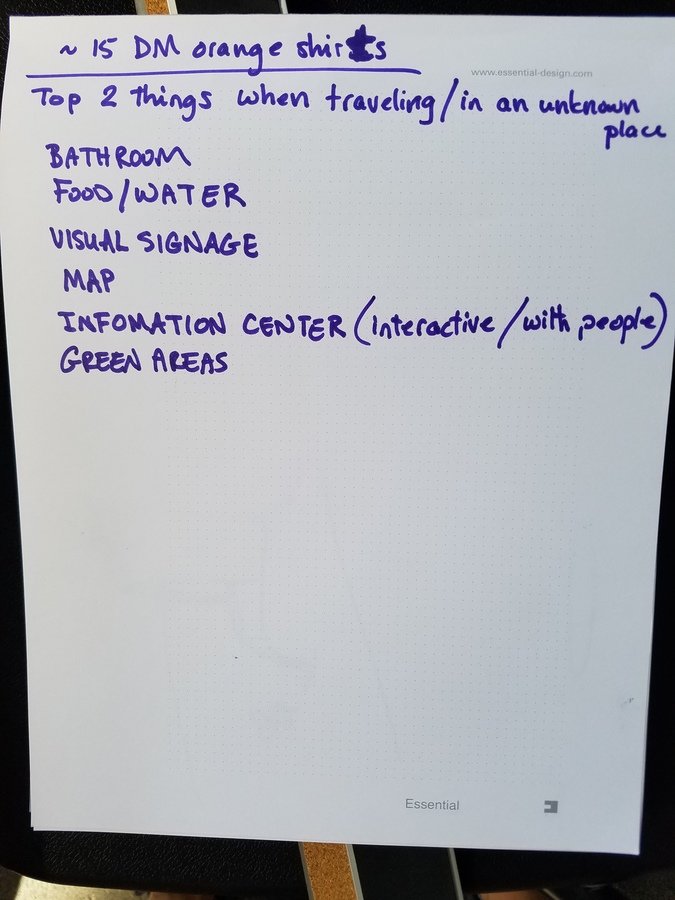 ~ 15 DM orange shirts
www.essential-design.com
Top 2 things when traveling/in an unknown
place
BATHROOM
FOOD/WATER
VISUAL SIGNAGE
MAP
INFOMATION CENTER (Interactive/with people)
GREEN AREAS
Essential